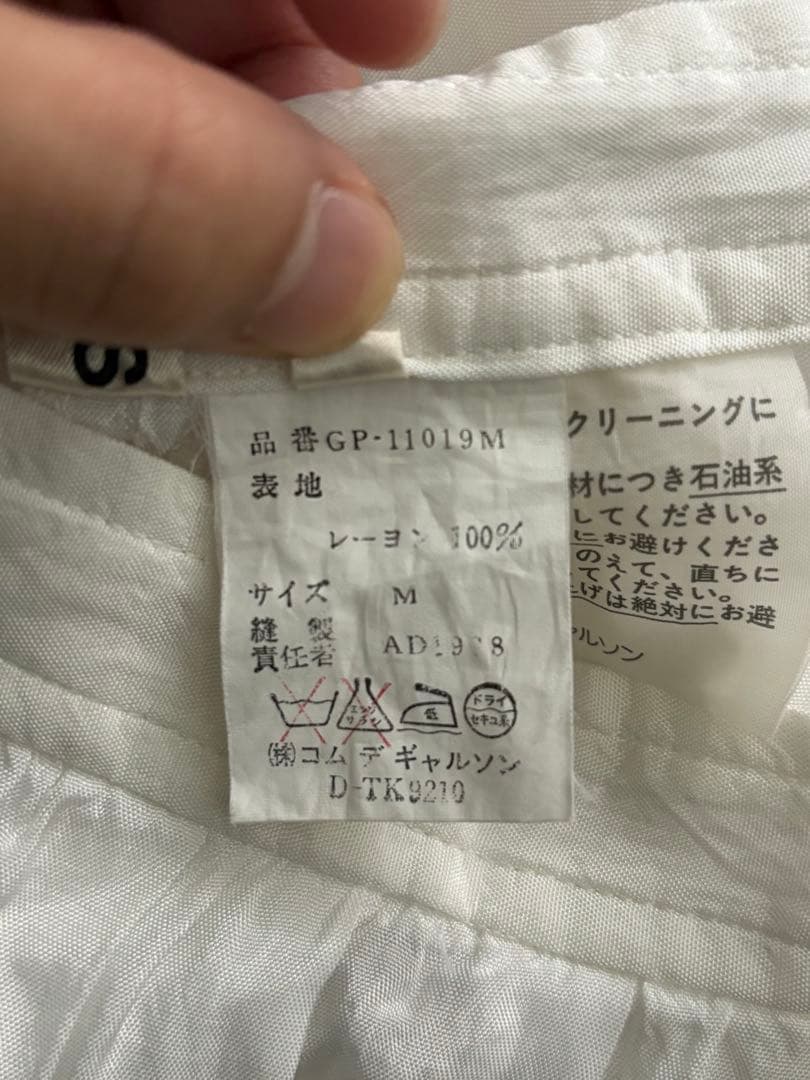 S
品番GP-11019M
表地
レーヨン 100%
サイズ M
縫製
責任者 AD1988
エンソ
サラシ
低
ドライ
セキユ系
㈱コム デ ギャルソン
D-TK9210
クリーニングに
材につき石油系
してください。
にお避けくださ
のえて、直ちに
てください。
上げは絶対にお避
ャルソン